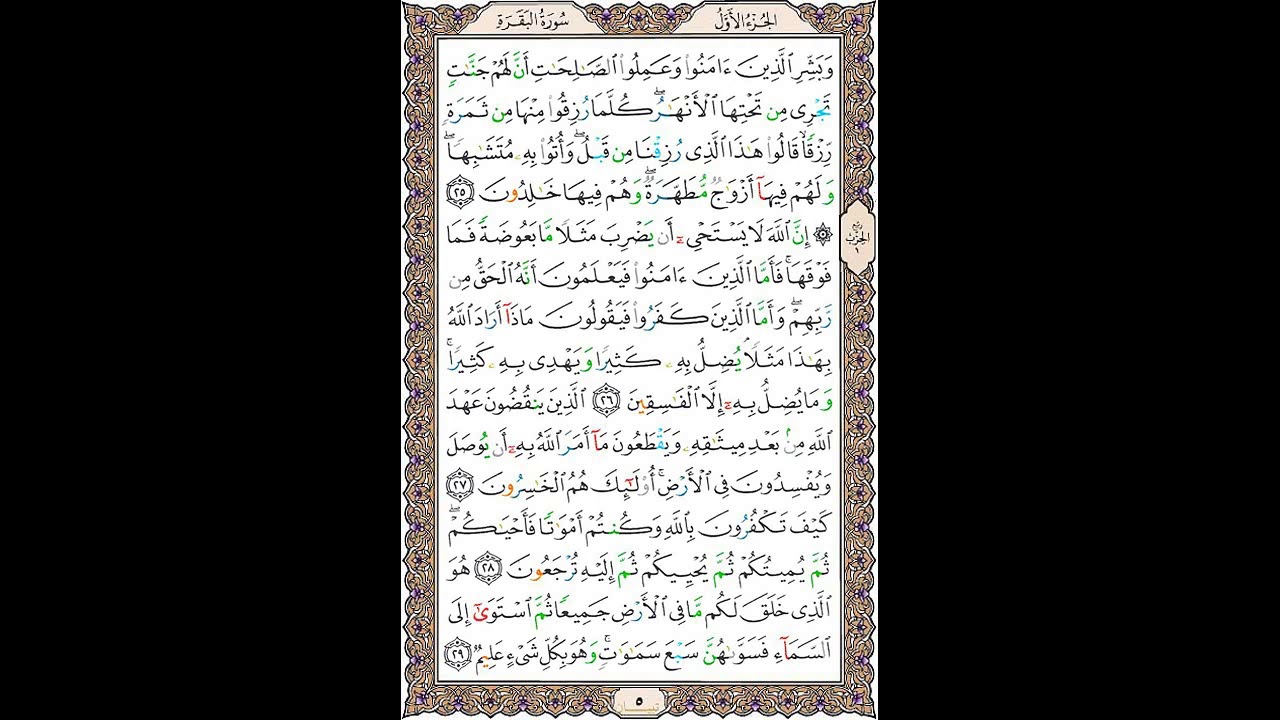 الجزء الأول
سورة البقرة
وَبَشِّرِ ٱلَّذِينَ ءَامَنُوا۟ وَعَمِلُوا۟ ٱلصَّـٰلِحَـٰتِ أَنَّ لَهُمْ جَنَّـٰتٍ
تَجْرِى مِن تَحْتِهَا ٱلْأَنْهَـٰرُ ۖ كُلَّمَا رُزِقُوا۟ مِنْهَا مِن ثَمَرَةٍ
رِّزْقًا ۙ قَالُوا۟ هَـٰذَا ٱلَّذِى رُزِقْنَا مِن قَبْلُ ۖ وَأُتُوا۟ بِهِۦ مُتَشَـٰبِهًا ۖ
وَلَهُمْ فِيهَآ أَزْوَٰجٌ مُّطَهَّرَةٌ ۖ وَهُمْ فِيهَا خَـٰلِدُونَ ٢٥
۞ إِنَّ ٱللَّهَ لَا يَسْتَحْىِۦٓ أَن يَضْرِبَ مَثَلًا مَّا بَعُوضَةً فَمَا
فَوْقَهَا ۚ فَأَمَّا ٱلَّذِينَ ءَامَنُوا۟ فَيَعْلَمُونَ أَنَّهُ ٱلْحَقُّ مِن
رَّبِّهِمْ ۖ وَأَمَّا ٱلَّذِينَ كَفَرُوا۟ فَيَقُولُونَ مَاذَآ أَرَادَ ٱللَّهُ
بِهَـٰذَا مَثَلًا ۘ يُضِلُّ بِهِۦ كَثِيرًا وَيَهْدِى بِهِۦ كَثِيرًا ۚ
وَمَا يُضِلُّ بِهِۦٓ إِلَّا ٱلْفَـٰسِقِينَ ٢٦ ٱلَّذِينَ يَنقُضُونَ عَهْدَ
ٱللَّهِ مِنۢ بَعْدِ مِيثَـٰقِهِۦ وَيَقْطَعُونَ مَآ أَمَرَ ٱللَّهُ بِهِۦٓ أَن يُوصَلَ
وَيُفْسِدُونَ فِى ٱلْأَرْضِ ۚ أُو۟لَـٰٓئِكَ هُمُ ٱلْخَـٰسِرُونَ ٢٧
كَيْفَ تَكْفُرُونَ بِٱللَّهِ وَكُنتُمْ أَمْوَٰتًا فَأَحْيَـٰكُمْ ۖ
ثُمَّ يُمِيتُكُمْ ثُمَّ يُحْيِيكُمْ ثُمَّ إِلَيْهِ تُرْجَعُونَ ٢٨ هُوَ
ٱلَّذِى خَلَقَ لَكُم مَّا فِى ٱلْأَرْضِ جَمِيعًا ثُمَّ ٱسْتَوَىٰٓ إِلَى
ٱلسَّمَآءِ فَسَوَّىٰهُنَّ سَبْعَ سَمَـٰوَٰتٍ ۚ وَهُوَ بِكُلِّ شَىْءٍ عَلِيمٌ ٢٩
ربع
الحزب
١
٥
تبيان